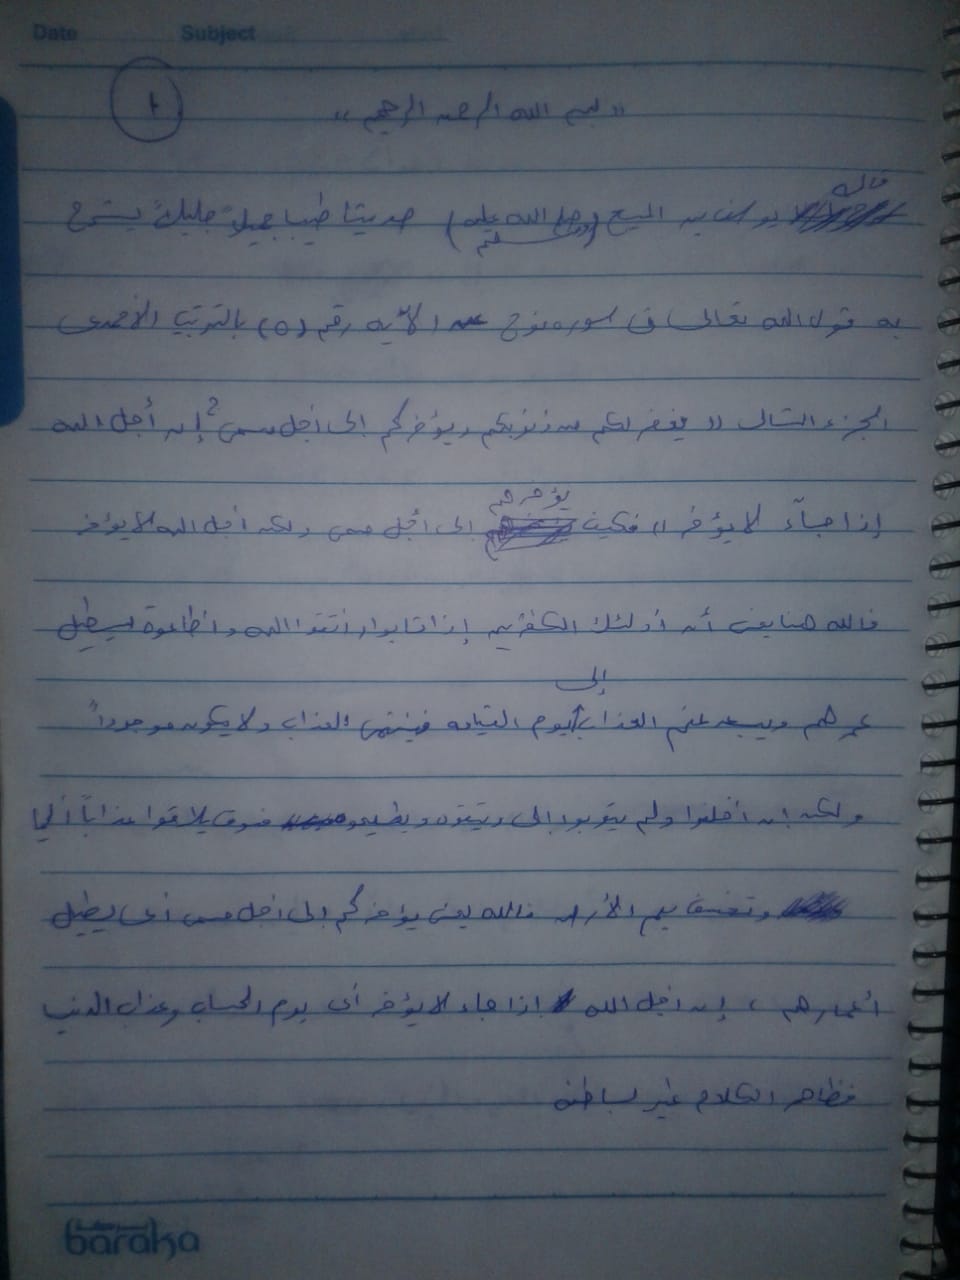 Date Subject
١
" بسم الله الرحمن الرحيم "
قال
يوسف بن المسيح (صلى الله عليه وسلم) حديثا طيبا جميلاً جليلاً يشرح
به قول الله تعالى فى سوره نوح الآيه رقم (٥) بالترتيب الأحمدى
الجزء التالى " يغفر لكم من ذنوبكم ويؤخركم إلى أجل مسمى إن أجل الله
إذا جآء لا يؤخر " فكيف يؤخرهم إلى أجل مسمى ولكن أجل الله لا يؤخر
فالله هنا يعنى أن أولئك الكفرين إذا تابوا واتقوا الله وأطاعوة سيطيل
عمرهم ويبعد عنهم العذاب إلى يوم القيامه فينتهى العذاب ولا يكون موجوداً
ولكن إن أخلفوا ولم يتوبوا إلى ويتقون ويطيعو فسوف يلاقوا عذاباً أليما
وتخسف بهم الأرض فالله يعنى يؤخركم إلى أجل مسمى أى يطيل
أعمارهم ، إن أجل الله إذا جاء لا يؤخر أى يوم الحساب وعذاب الدنيا
فظاهر الكلام غير باطنه
baraka